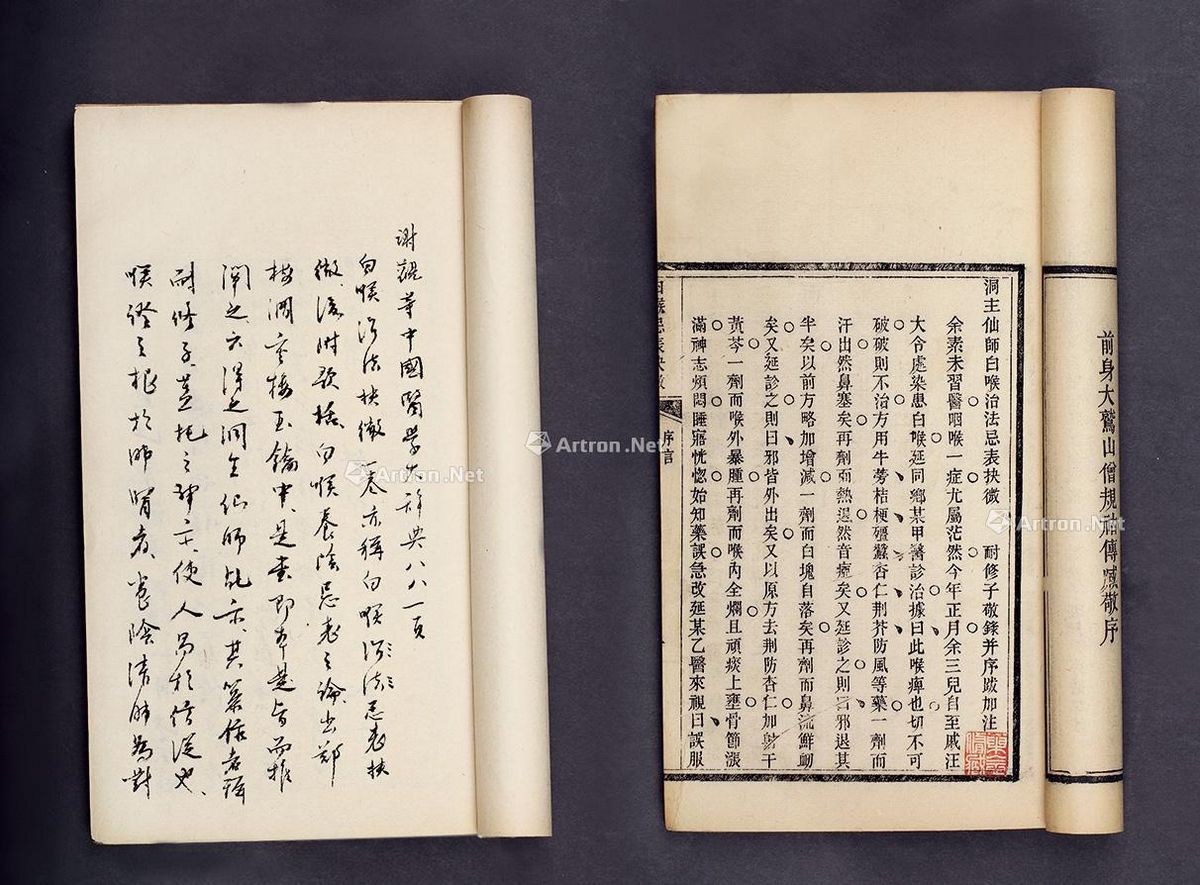 前身大鷲山僧規祐傳燈敬序
洞主仙師白喉治法忌表抉微 耐修子敬錄并序跋加注
余素未習醫咽喉一症尤屬茫然今年正月余三兒自至戚汪
大令處染患白喉延同鄉某甲醫診治據曰此喉痺也切不可
破破則不治方用牛蒡桔梗殭蠶杏仁荆芥防風等藥一劑而
汗出然鼻塞矣再劑而熱退然音瘖矣又延診之則曰邪退其
半矣以前方略加增減一劑而白塊自落矣再劑而鼻流鮮衄
矣又延診之則曰邪皆外出矣又以原方去荆防杏仁加射干
黃芩一劑而喉外暴腫再劑而喉內全爛且頑痰上壅骨節漲
滿神志煩悶睡寤恍惚始知藥誤急改延某乙醫來視曰誤服
序言
謝觀等中國醫學大辞典八八一頁
白喉治法抉微一卷亦稱白喉治法忌表抉
微後附歌括白喉養陰忌表之論出鄭
梅澗重樓玉鑰中是書即本是旨而推
闡之云得之洞主仙師乩示其纂作者稱
耐修子蓋托之神示使人易於信從也
喉證之根於肺腎者養陰清肺為對
Artron.Net
Artron.Net
Artron.Net